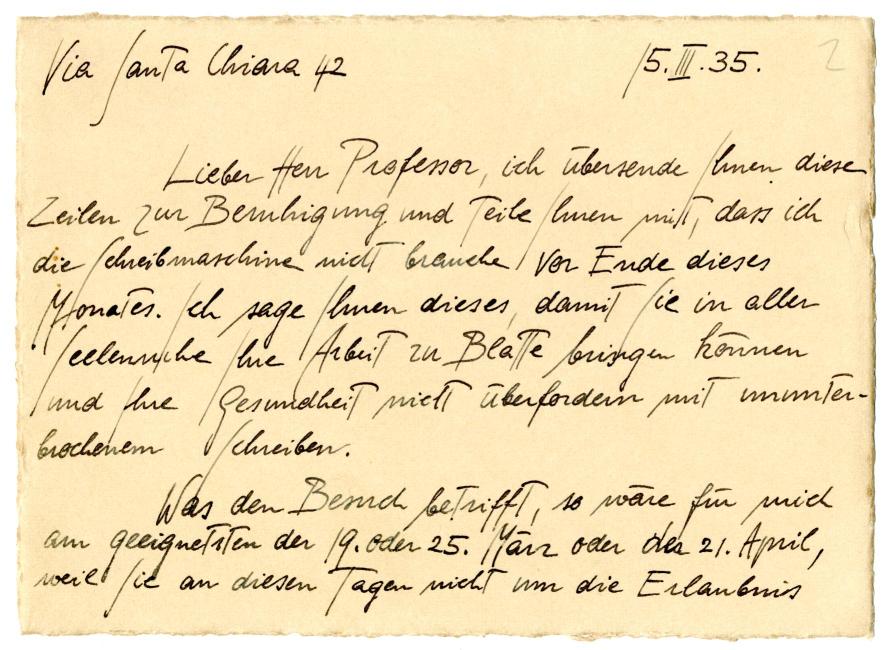 Via Santa Chiara 42 15.III.35. 2
Lieber Herr Professor, ich übersende Ihnen diese
Zeilen zur Beruhigung und teile Ihnen mit, dass ich
die Schreibmaschine nicht brauche vor Ende dieses
Monates. Ich sage Ihnen dieses, damit Sie in aller
Seelenruhe Ihre Arbeit zu Blatte bringen können
und Ihre Gesundheit nicht überfordern mit ununter-
brochenem Schreiben.
Was den Besuch betrifft, so wäre für mich
am geeignetsten der 19. oder 25. März oder der 21. April,
weil Sie an diesen Tagen nicht um die Erlaubnis